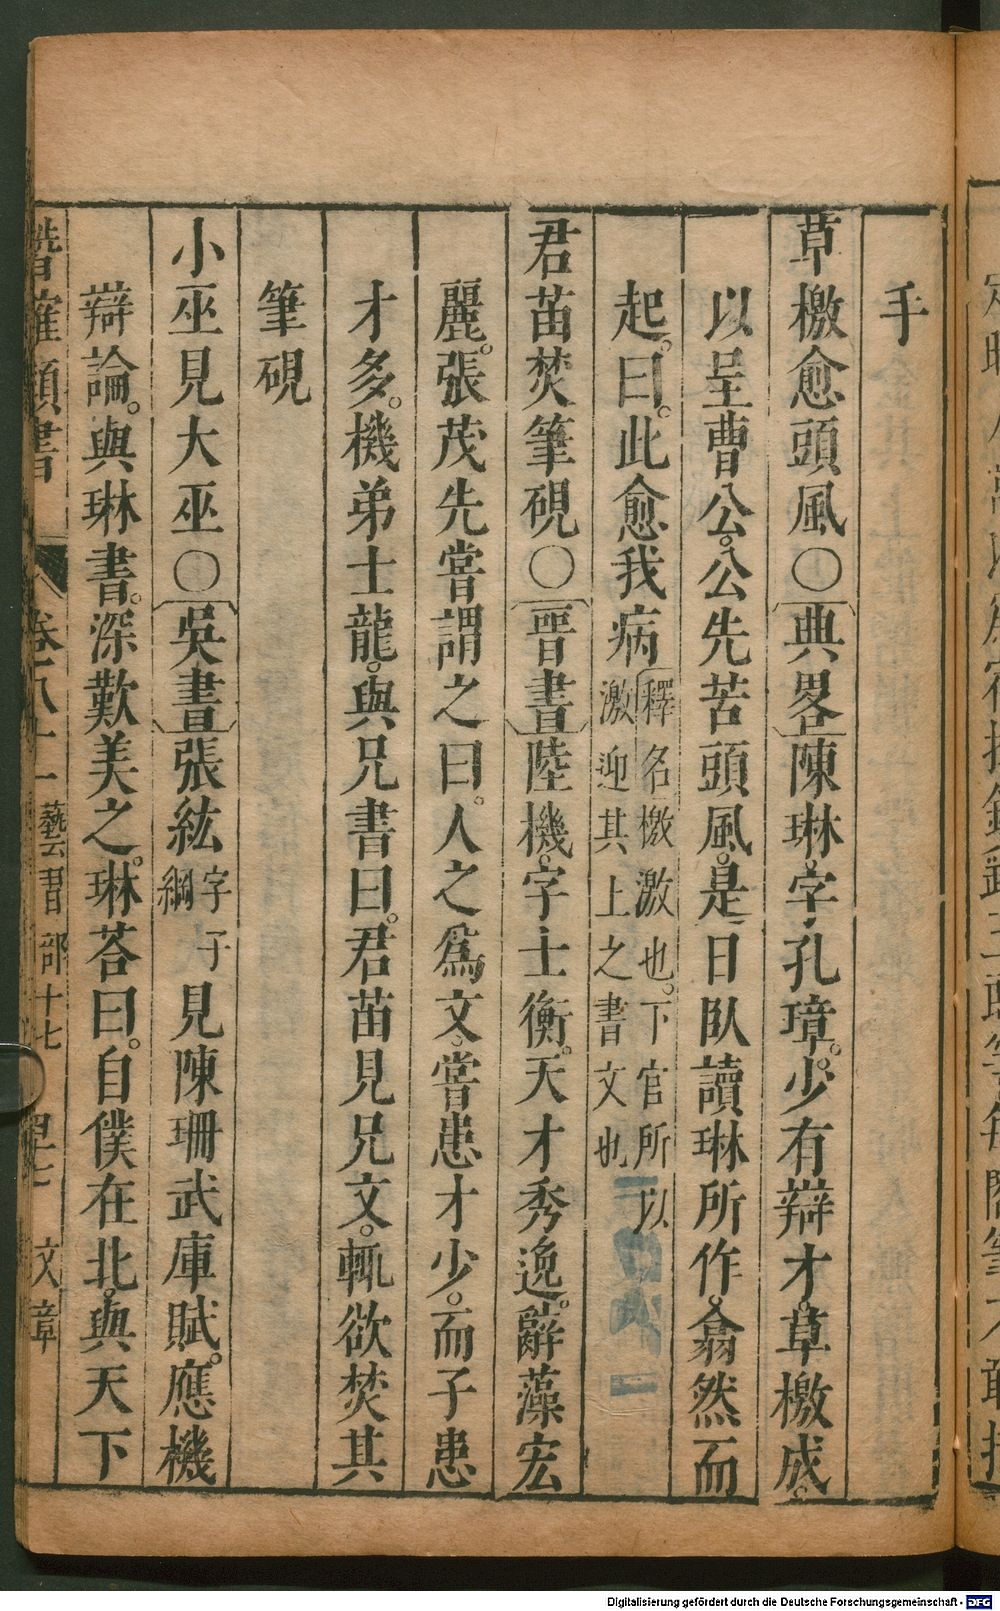 手
草檄愈頭風○典畧陳琳。字孔璋。少有辯才。草檄成。
以呈曹公。公先苦頭風。是日臥讀琳所作。翕然而
起。曰。此愈我病
釋名檄激也。下官所以
激迎其上之書文也
君苗焚筆硯○晉書陸機。字士衡。天才秀逸。辭藻宏
麗。張茂先嘗謂之曰。人之爲文。嘗患才少。而子患
才多。機弟士龍。與兄書曰。君苗見兄文。輒欲焚其
筆硯
小巫見大巫○吳書張紘
字子
綱
見陳珊武庫賦。應機
辯論。與琳書。深歎美之。琳荅曰。自僕在北。與天下
類書 藝書部十七 文章
Digitalisierung gefördert durch die Deutsche Forschungsgemeinschaft - DFG